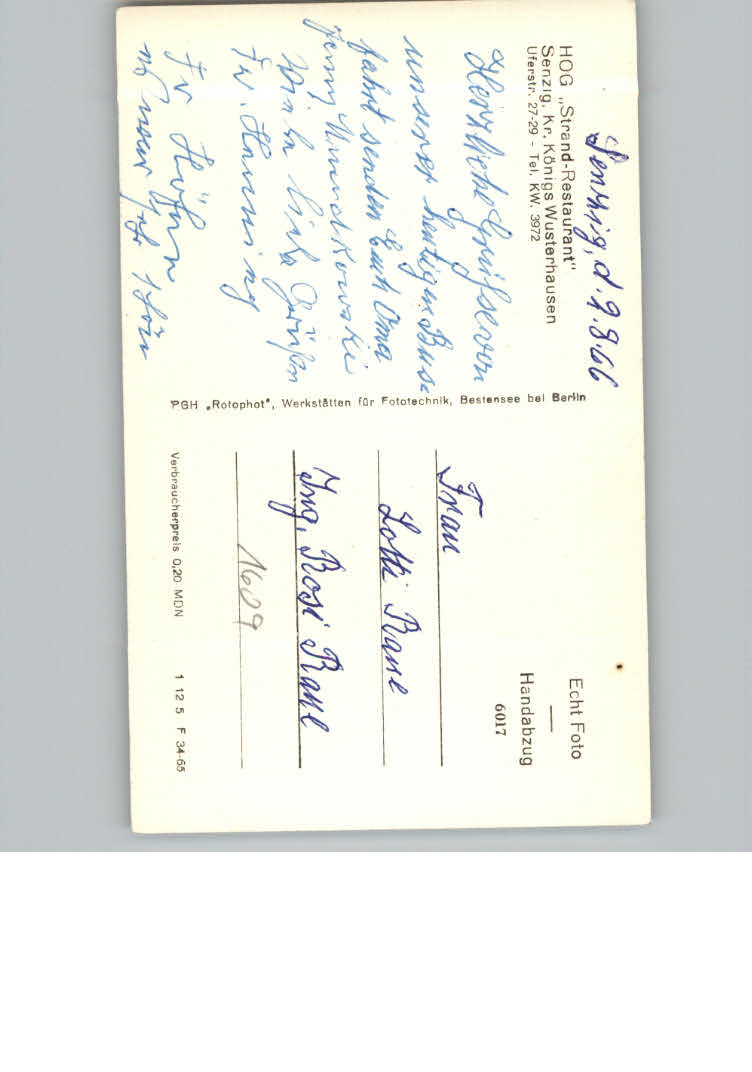 Senzig, d. 9.8.66
HOG „Strand-Restaurant“
Senzig, Kr. Königs Wusterhausen
Uferstr. 27-29 - Tel. KW. 3972
Herzliche Grüße von
unserer heutigen Bus-
fahrt senden Euch Oma
Jenny
viele liebe Grüßen
Fr. Hanning
Fr Höhn
es war sehr schön
PGH „Rotophot“, Werkstätten für Fototechnik, Bestensee bei Berlin
Echt Foto
Handabzug
6017
Frau
Lotti Rane
Ing. Rosi Rane
1609
Verbraucherpreis 0,20 MDN
1 12 5 F 34-65